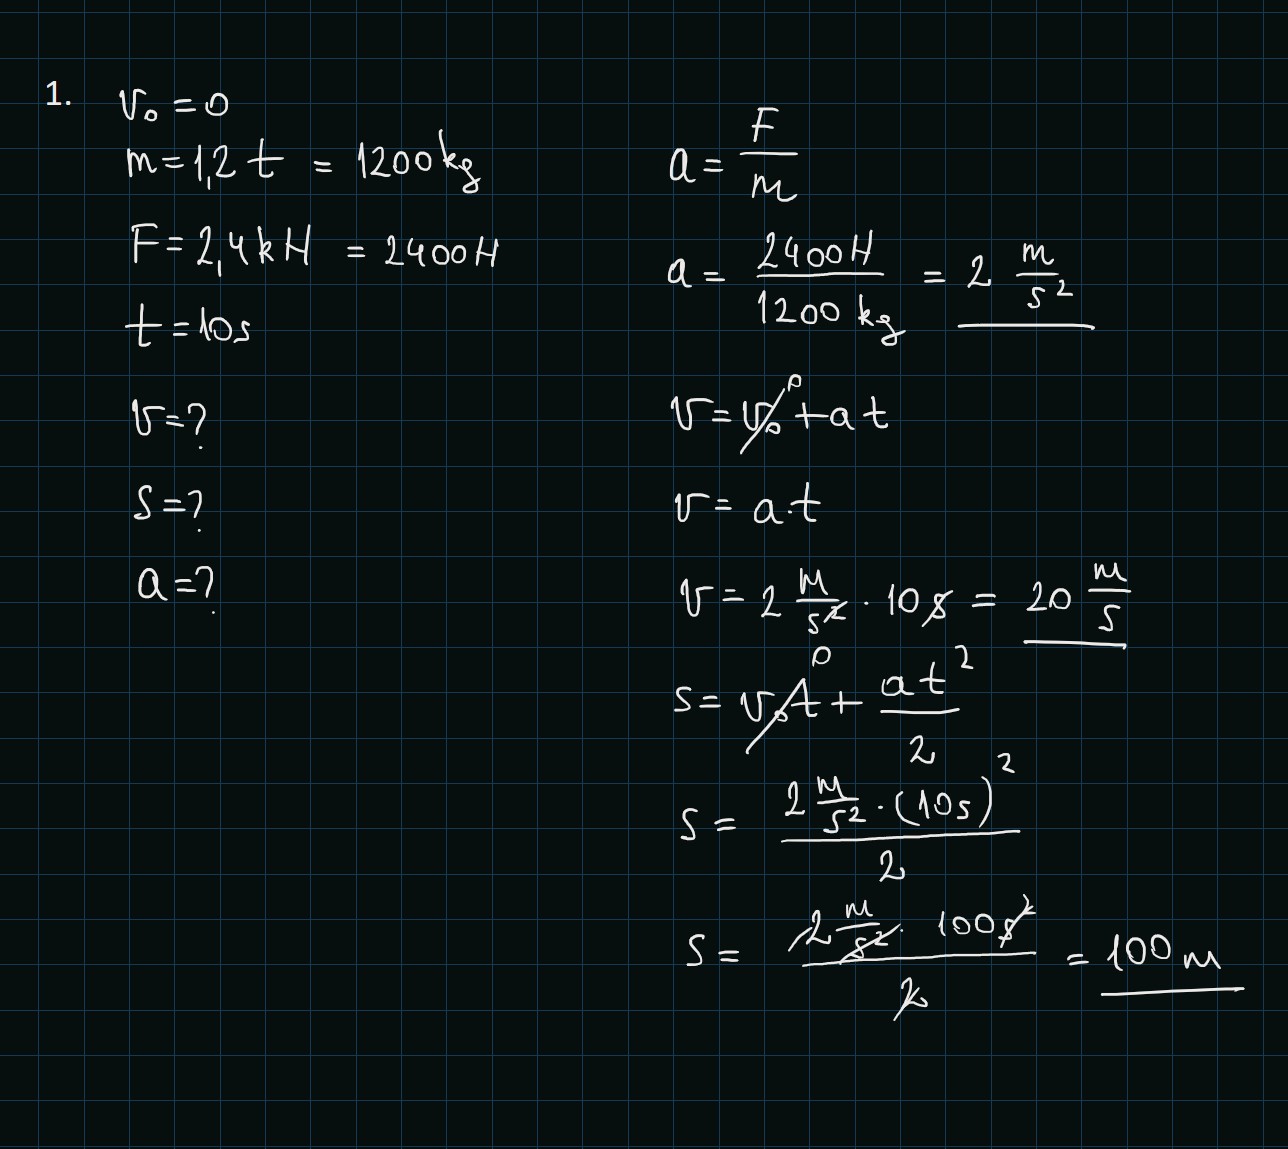 1. v₀ = 0
m = 1,2 t = 1200 kg
F = 2,4 kH = 2400 H
t = 10s
v = ?
s = ?
a = ?
a = F/m
a = 2400 H / 1200 kg = 2 m/s²
v = v₀⁰ + a t
v = a · t
v = 2 м/s² · 10 s = 20 m/s
s = v₀t⁰ + at²/2
s = 2 м/s² · (10s)² / 2
s = 2 м/s² · 100 s² / 2 = 100 м